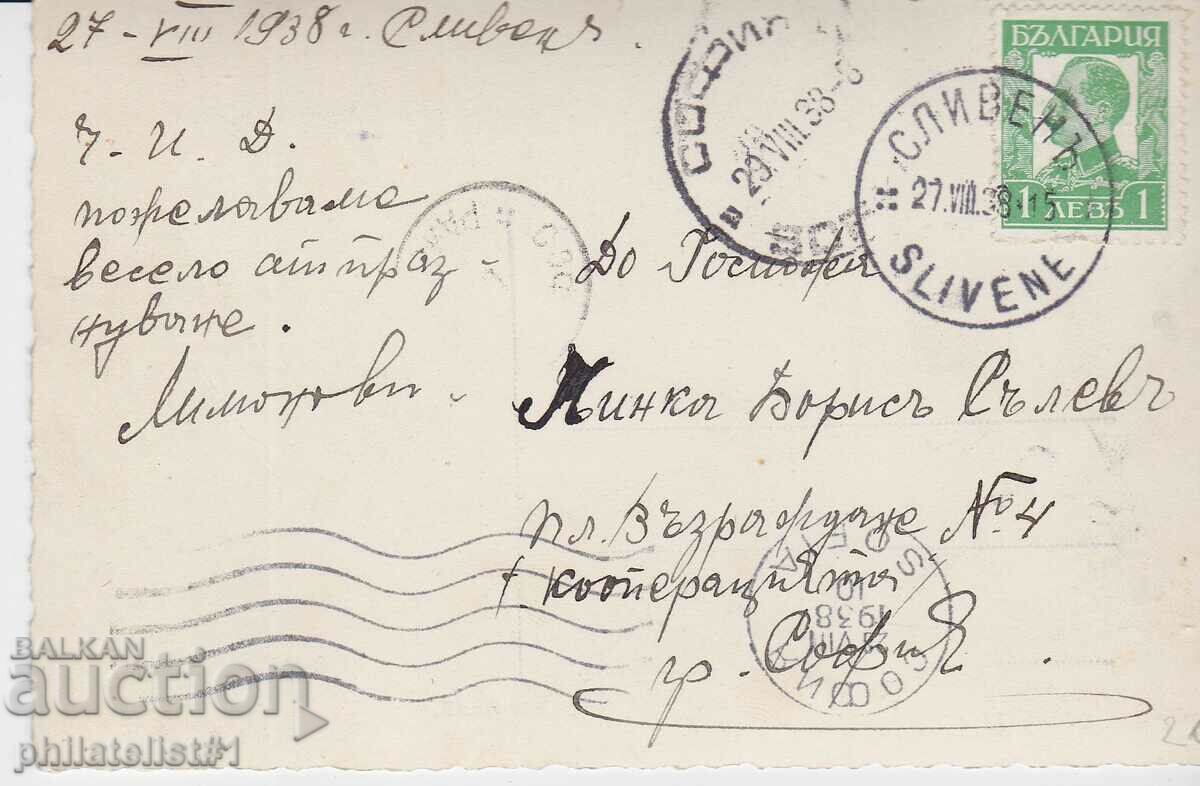 27-VIII 1938 г. Сливенъ.
Ч. И. Д.
пожелаваме
весело отпраз-
нуване.
Симонови.
До Госпожа
Минка Борисъ Сълевъ
пл. Възраждане № 4
кооперацията
гр. София
БЪЛГАРИЯ
1 ЛЕВЪ 1
СЛИВЕНЪ
27.VIII.38-15
SLIVENE
СОФИЯ
29.VIII.38-8
SOFIA
10
1938
VIII
СОФИЯ
BALKAN
auction
philatelist#1